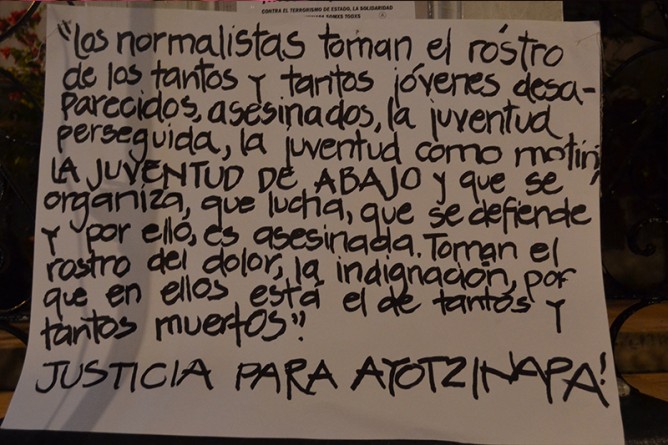 CONTRA EL TERRORISMO DE ESTADO, LA SOLIDARIDAD
SOMOS TODES
"Los normalistas toman el róstro
de los tantos y tantos jóvenes desa-
parecidos, asesinados, la juventud
perseguida, la juventud como motín,
LA JUVENTUD DE ABAJO y que se
organiza, que lucha, que se defiende
y por ello, es asesinada. Toman el
rostro del dolor, la indignación, por
que en ellos está el de tantos y
tantos muertos".
JUSTICIA PARA AYOTZINAPA!